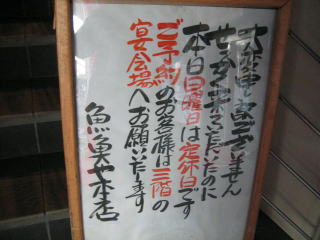 大変申し訳ございません
せっかく来ていただいたのに
本日日曜日は定休日です
ご予約のお客様は三階の
宴会場へお願いいたします
魚魚や本店